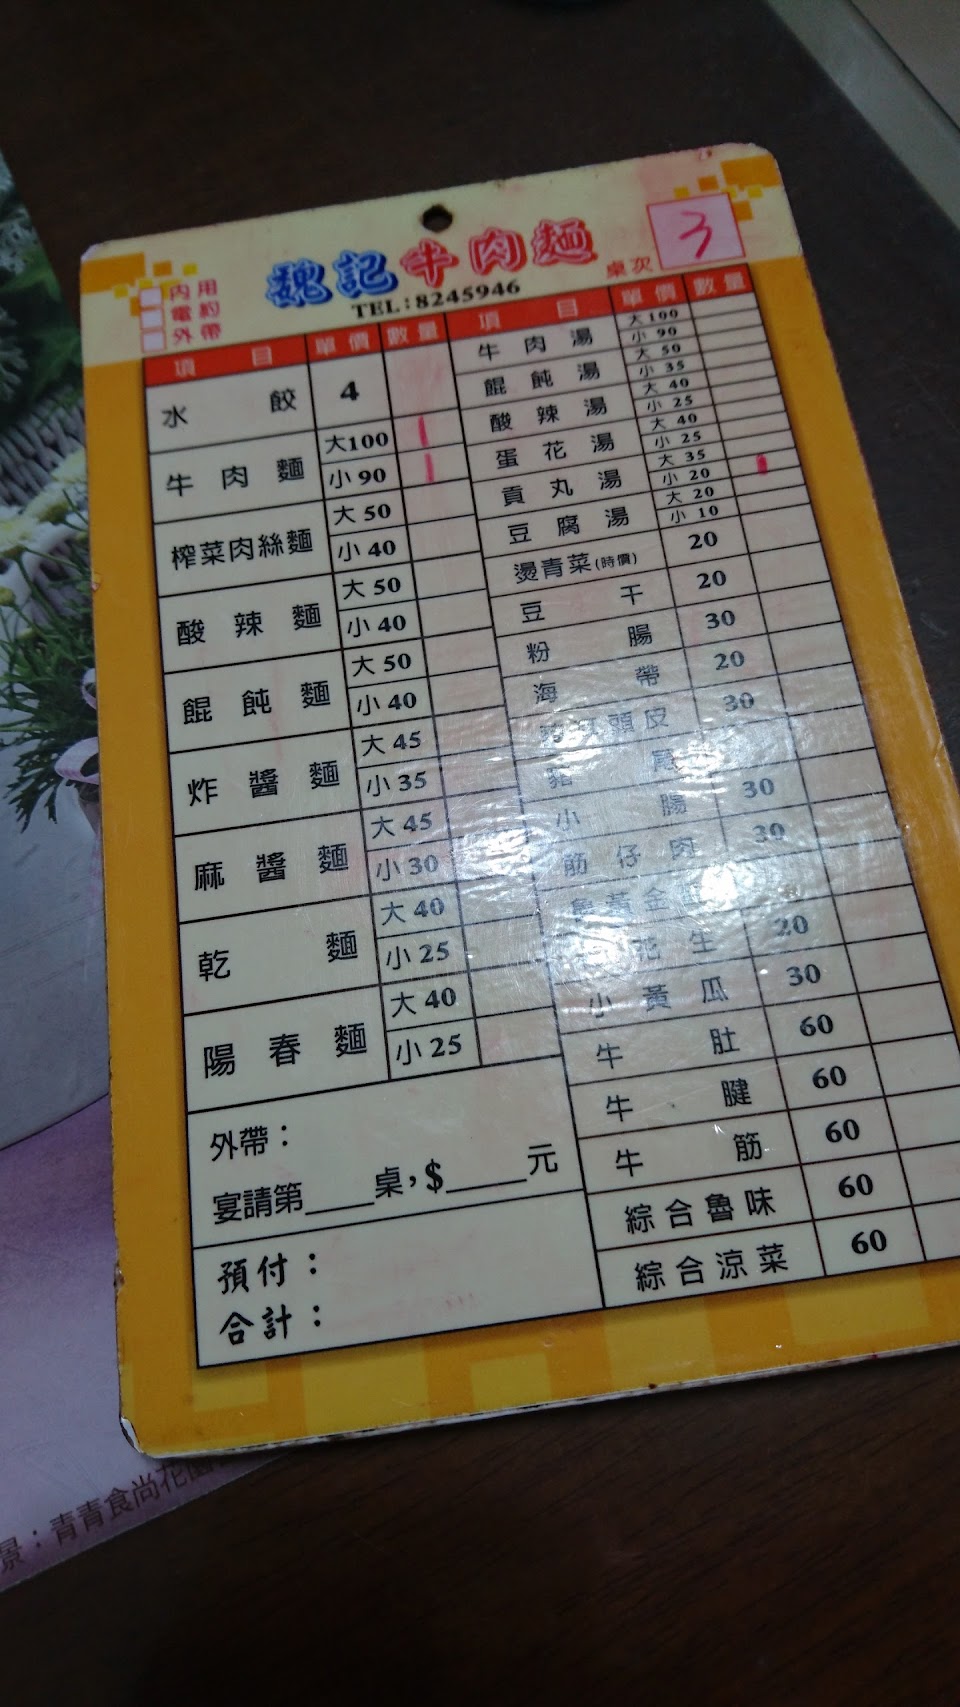 魏記牛肉麵
桌次 3
TEL:8245946
內用
電約
外帶
項目 單價 數量
水餃 4
牛肉麵 大100 1
小90 1
榨菜肉絲麵 大50
小40
酸辣麵 大50
小40
餛飩麵 大50
小40
炸醬麵 大45
小35
麻醬麵 大45
小30
乾麵 大40
小25
陽春麵 大40
小25
外帶：
宴請第____桌，$_____元
預付：
合計：
項目 單價 數量
牛肉湯 大100
小90
餛飩湯 大50
小35
酸辣湯 大40
小25
蛋花湯 大40
小25
貢丸湯 大35
小20 1
豆腐湯 大20
小10
燙青菜(時價) 20
豆干 20
粉腸 30
海帶 20
頭皮 30
豬
小腸 30
筋仔肉 30
黃金
花生 20
小黃瓜 30
牛肚 60
牛腱 60
牛筋 60
綜合魯味 60
綜合涼菜 60
景：青青食尚花園